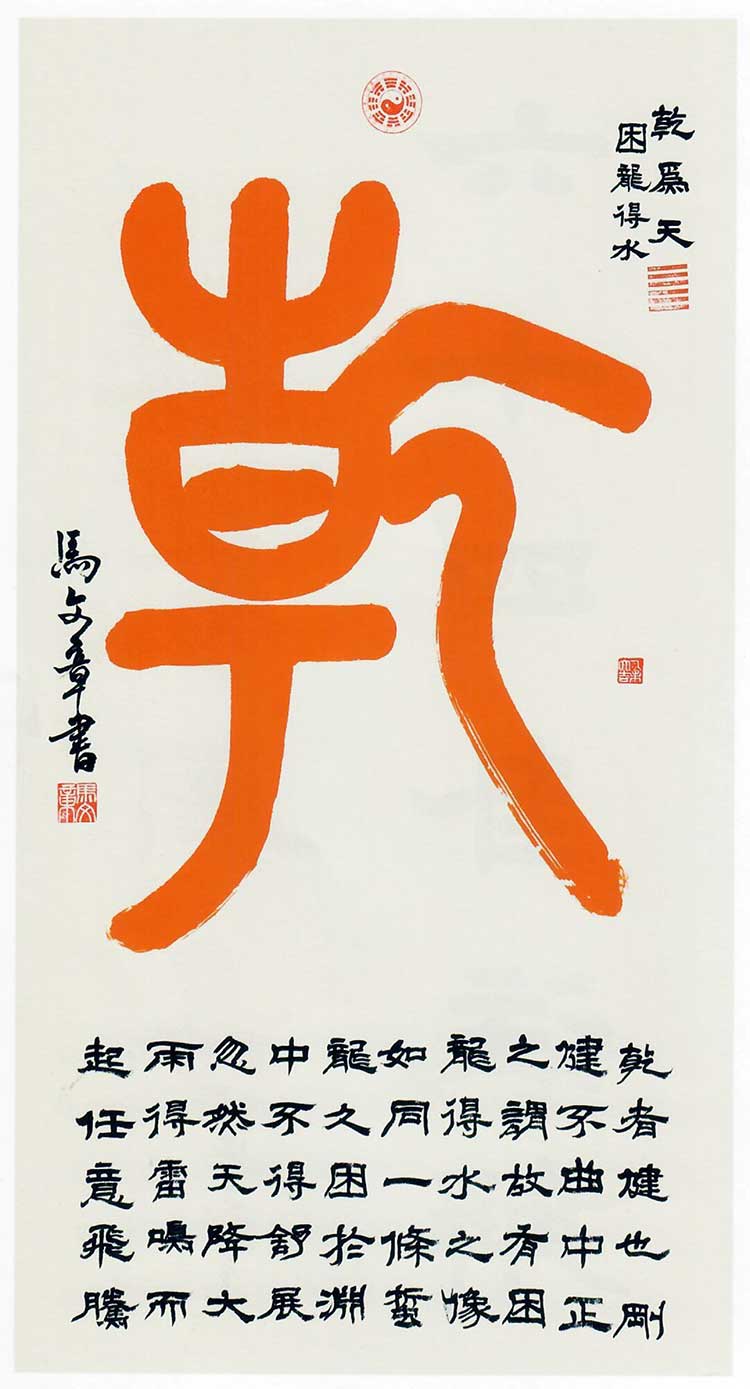 乾為天
困龍得水
乾
乾者健也剛
健不曲中正
之謂故有困
龍得水之像
如同一條蜇
龍之困於淵
中不得舒展
忽然天降大
雨得雷鳴而
起任意飛騰
馬文章書